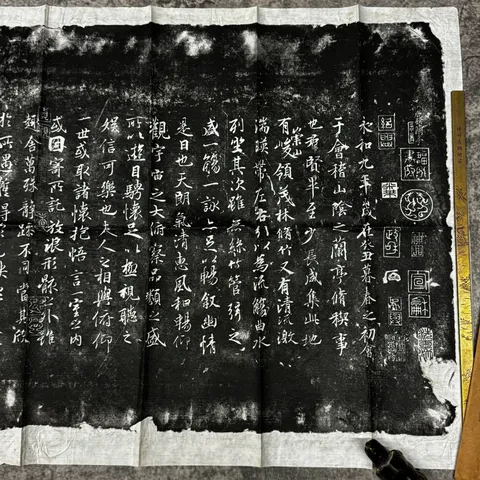 永和九年歲在癸丑暮春之初會
于會稽山陰之蘭亭脩稧事
也羣賢畢至少長咸集此地
有崇山峻領茂林脩竹又有清流激
湍暎帶左右引以為流觴曲水
列坐其次雖無絲竹管弦之
盛一觴一詠亦足以暢敘幽情
是日也天朗氣清惠風和暢仰
觀宇宙之大俯察品類之盛
所以遊目騁懷足以極視聽之
娛信可樂也夫人之相與俯仰
一世或取諸懷抱悟言一室之內
或因寄所託放浪形骸之外雖
趣舍萬殊靜躁不同當其欣
於所遇蹔得於